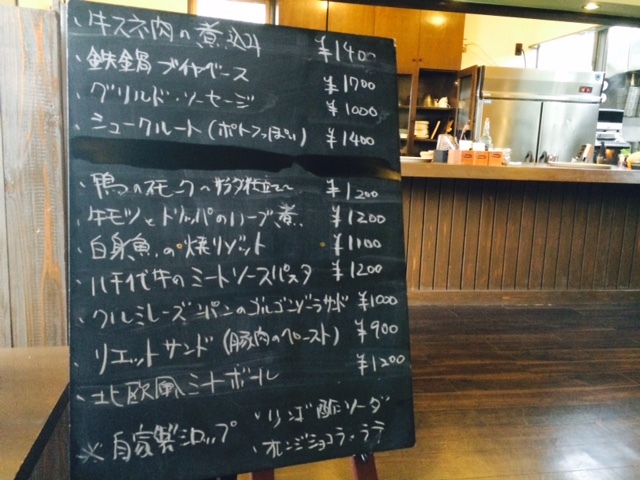 ・牛スネ肉の煮込み ¥1400
・鉄鍋ブイヤベース ¥1700
・グリルド・ソーセージ ¥1000
・シュークルート(ポトフっぽい) ¥1400
・鴨のスモーク 仕立て〜 ¥1200
・牛モツとトリッパのハーブ煮 ¥1200
・白身魚の焼リゾット ¥1100
・八千代牛のミートソースパスタ ¥1200
・クルミレーズンパンのゴルゴンゾーラサンド ¥1000
・リエットサンド(豚肉のペースト) ¥900
・北欧風ミートボール ¥1200
※自家製シロップ ・リンゴ酢ソーダ
・オレンジショコララテ